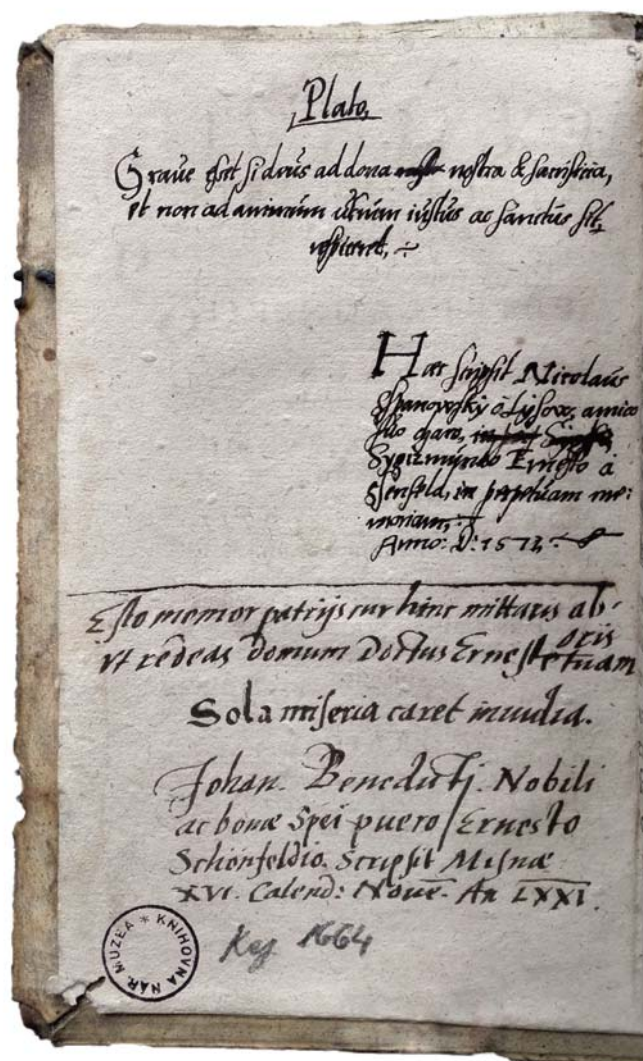 Plato,
Graue esset si deus ad dona nostra & sacrificia,
et non ad animum utrum iustus ac sanctus sit,
respiceret,
Haec scripsit Nicolaus
à Lysovo, amico
suo charo,
Sygizmundo Ernesto à
in perpetuam me:
moriam,
Anno: D: 157
Esto memor patrijs cur hinc mittaris ab
oris
vt redeas domum Doctus Erneste tuam
Sola miseria caret inuidia.
Johan. Benedicti. Nobili
ac bonæ Spei puero Ernesto
Schönfeldio. Scripsit Misnæ
XVI. Calend: Noue. An LXXI.
1664
KNIHOVNA NÁR. MUZEA *